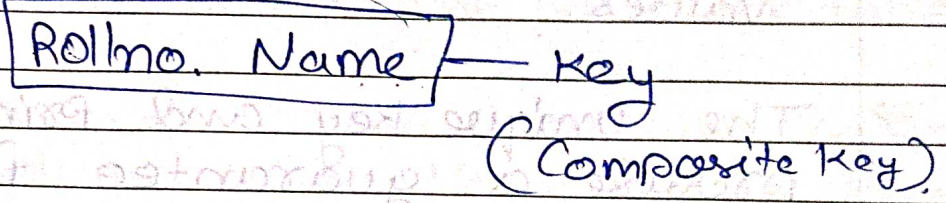 Rollno. Name — Key
(Composite Key).